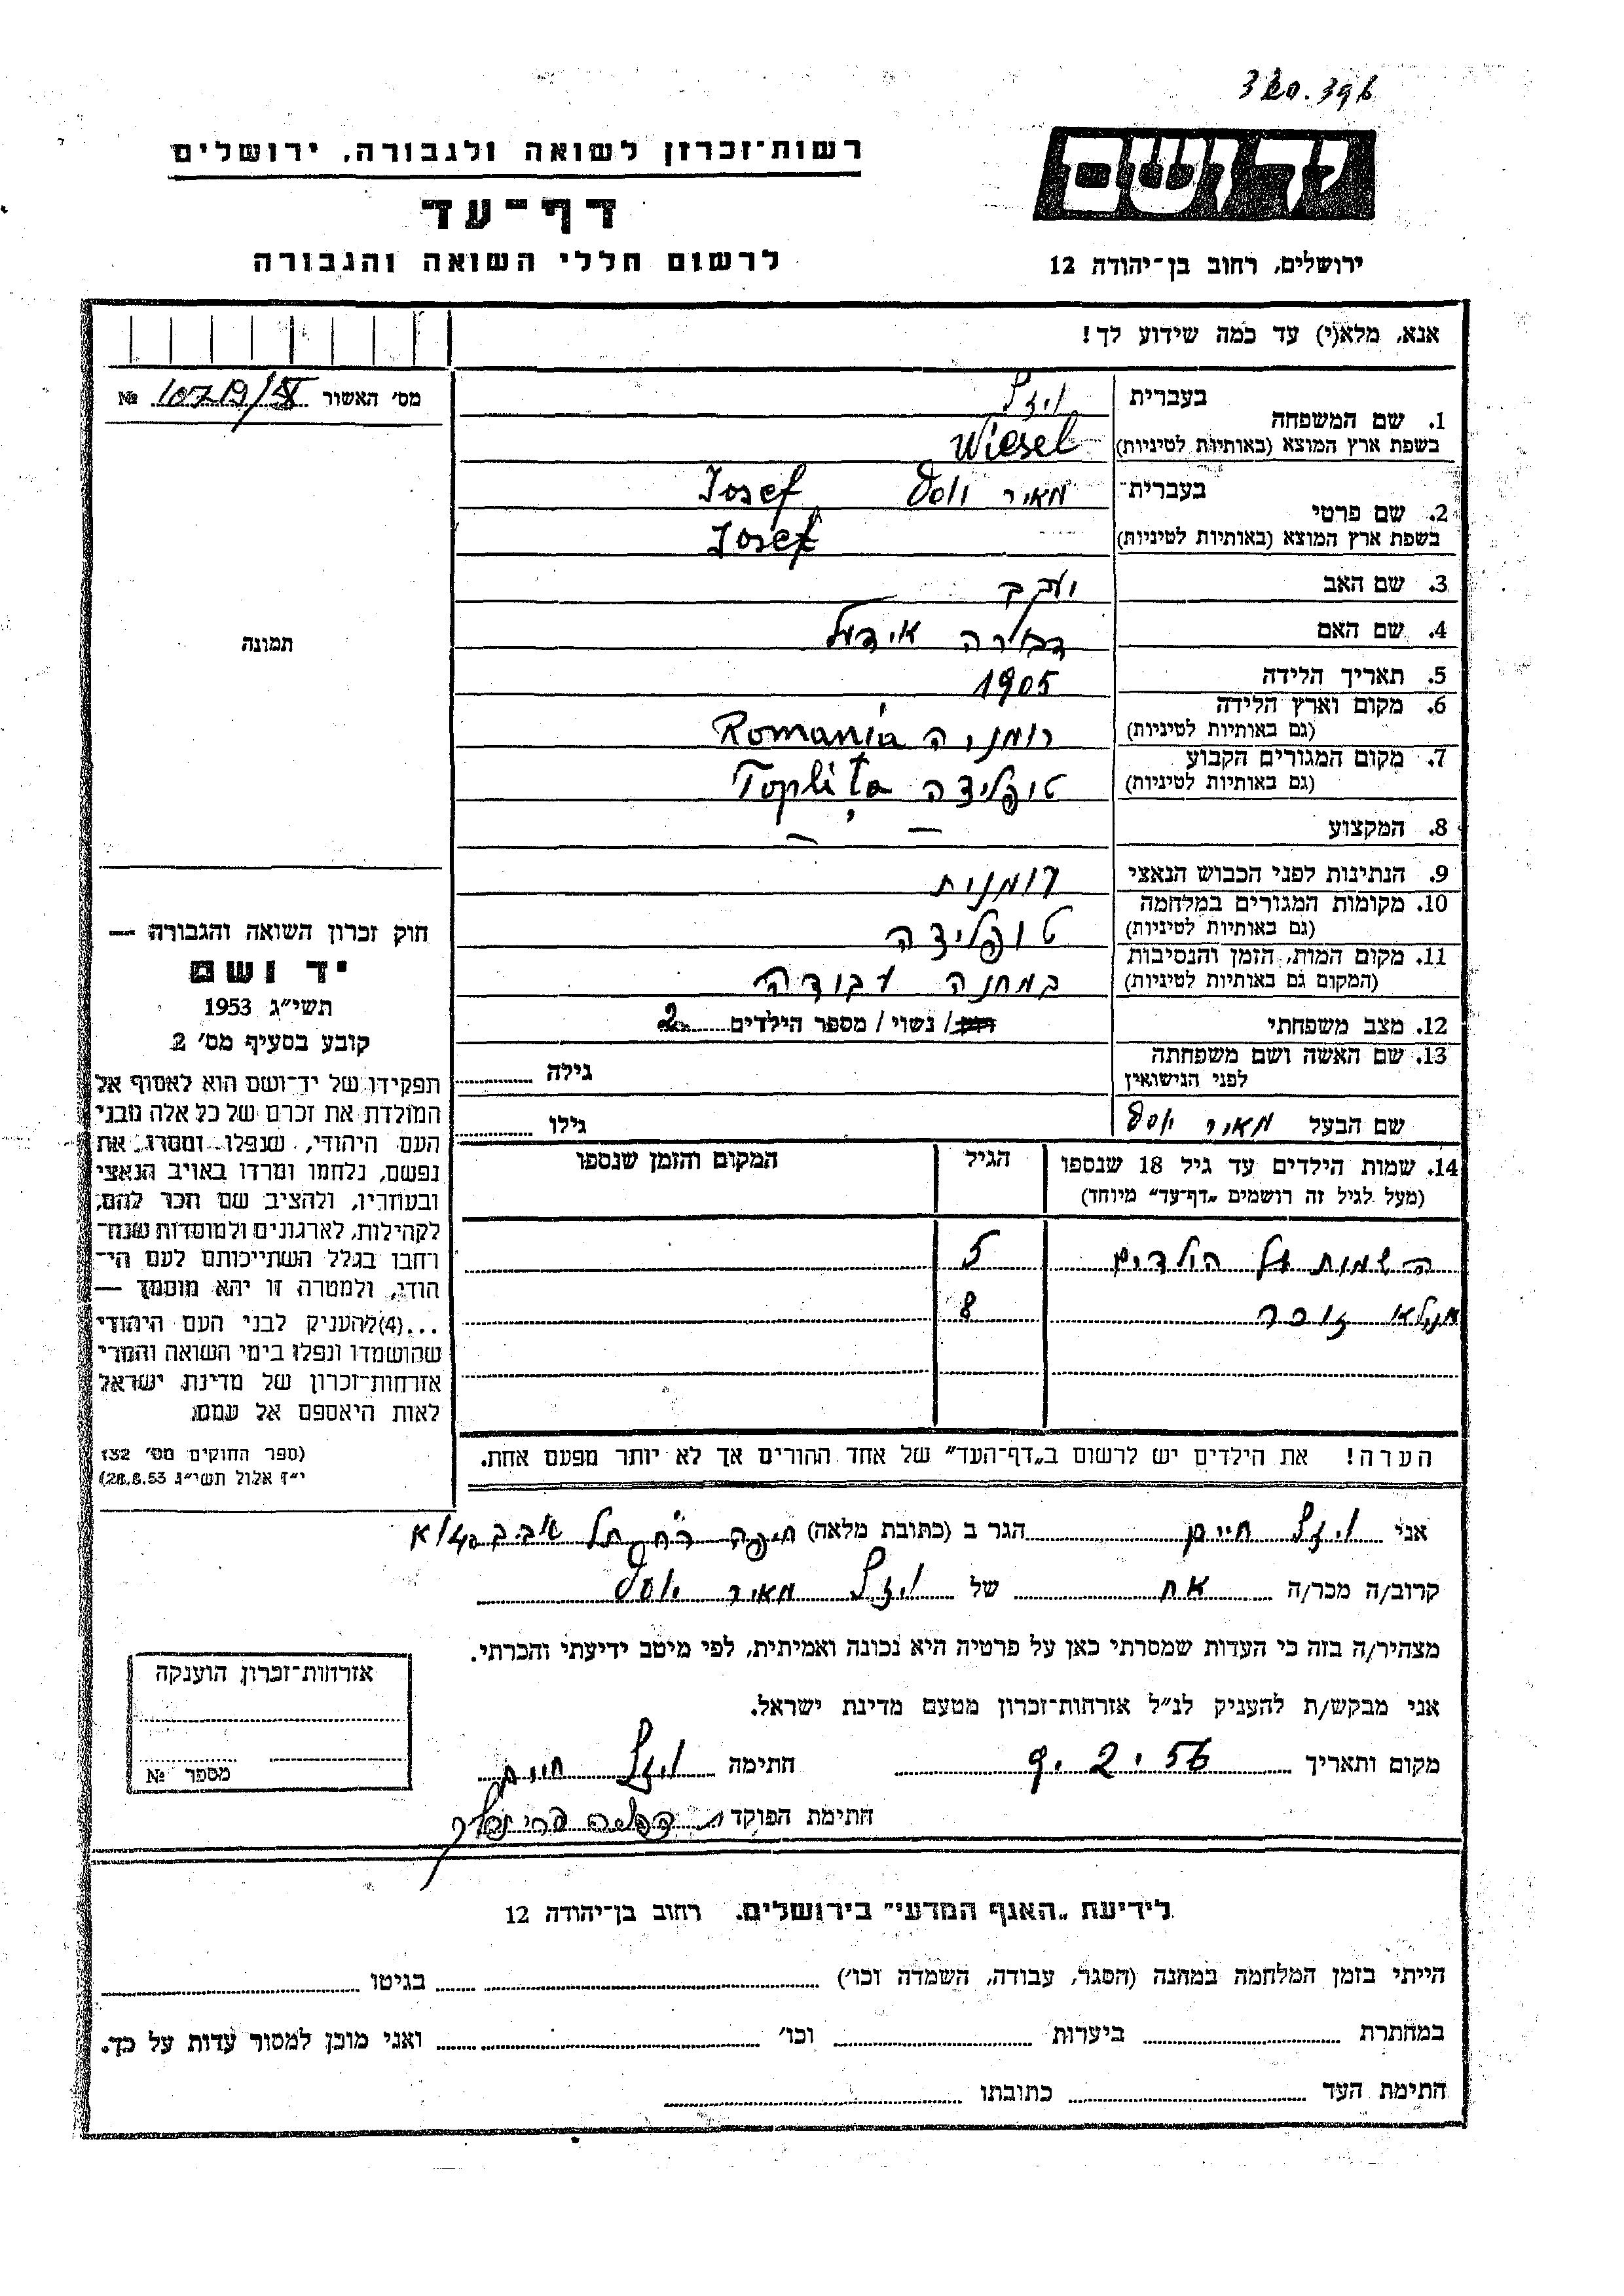 320.396
רשות־זכרון לשואה ולגבורה, ירושלים
דף־עד
לרשום חללי השואה והגבורה
יד ושם
ירושלים, רחוב בן־יהודה 12
אנא, מלא(י) עד כמה שידוע לך!
מס׳ האשור № 1079/IX
תמונה
1. שם המשפחה בעברית ויזל
בשפת ארץ המוצא (באותיות לטיניות) Wiesel
2. שם פרטי בעברית מאיר יוסף Iosef
בשפת ארץ המוצא (באותיות לטיניות) Iosef
3. שם האב יעקב
4. שם האם דבורה אידל
5. תאריך הלידה 1905
6. מקום וארץ הלידה (גם באותיות לטיניות) רומניה Romania
7. מקום המגורים הקבוע (גם באותיות לטיניות) טופליצה Topliţa
8. המקצוע — —
9. הנתינות לפני הכבוש הנאצי רומנית
10. מקומות המגורים במלחמה (גם באותיות לטיניות) טופליצה
11. מקום המות, הזמן והנסיבות (המקום גם באותיות לטיניות) במחנה עבודה
12. מצב משפחתי רווק / נשוי / מספר הילדים 2
13. שם האשה ושם משפחתה לפני הנישואין גילה
שם הבעל מאיר יוסף גילו
14. שמות הילדים עד גיל 18 שנספו הגיל המקום והזמן שנספו
(מעל לגיל זה רושמים „דף־עד״ מיוחד)
השמות של הילדים 5
לא זוכר 8
הערה! את הילדים יש לרשום ב„דף־העד״ של אחד ההורים אך לא יותר מפעם אחת.
חוק זכרון השואה והגבורה —
יד ושם
תשי״ג 1953
קובע בסעיף מס׳ 2
תפקידו של יד־ושם הוא לאסוף אל
המולדת את זכרם של כל אלה מבני
העם היהודי, שנפלו ומסרו את
נפשם, נלחמו ומרדו באויב הנאצי
ובעוזריו, ולהציב שם וזכר להם,
לקהילות, לארגונים ולמוסדות שנח־
רבו בגלל השתייכותם לעם הי־
הודי, ולמטרה זו יהא מוסמך —
...(4) להעניק לבני העם היהודי
שהושמדו ונפלו בימי השואה והמרי
אזרחות־זכרון של מדינת ישראל
לאות היאספם אל עמם.
(ספר החוקים מס׳ 132
י״ז אלול תשי״ג 28.8.53)
אני ויזל חיים הגר ב (כתובת מלאה) חיפה רח׳ תל אביב 40/א
קרוב/ה מכר/ה אח של ויזל מאיר יוסף
מצהיר/ה בזה כי העדות שמסרתי כאן על פרטיה היא נכונה ואמיתית, לפי מיטב ידיעתי והכרתי.
אני מבקש/ת להעניק לנ״ל אזרחות־זכרון מטעם מדינת ישראל.
מקום ותאריך 9.2.56 חתימה ויזל חיים
חתימת הפוקד
אזרחות־זכרון הוענקה
מספר №
לידיעת „האגף המדעי״ בירושלים. רחוב בן־יהודה 12
הייתי בזמן המלחמה במחנה (הסגר, עבודה, השמדה וכו׳) בגיטו
במחתרת ביערות וכו׳ ואני מוכן למסור עדות על כך.
חתימת העד כתובתו